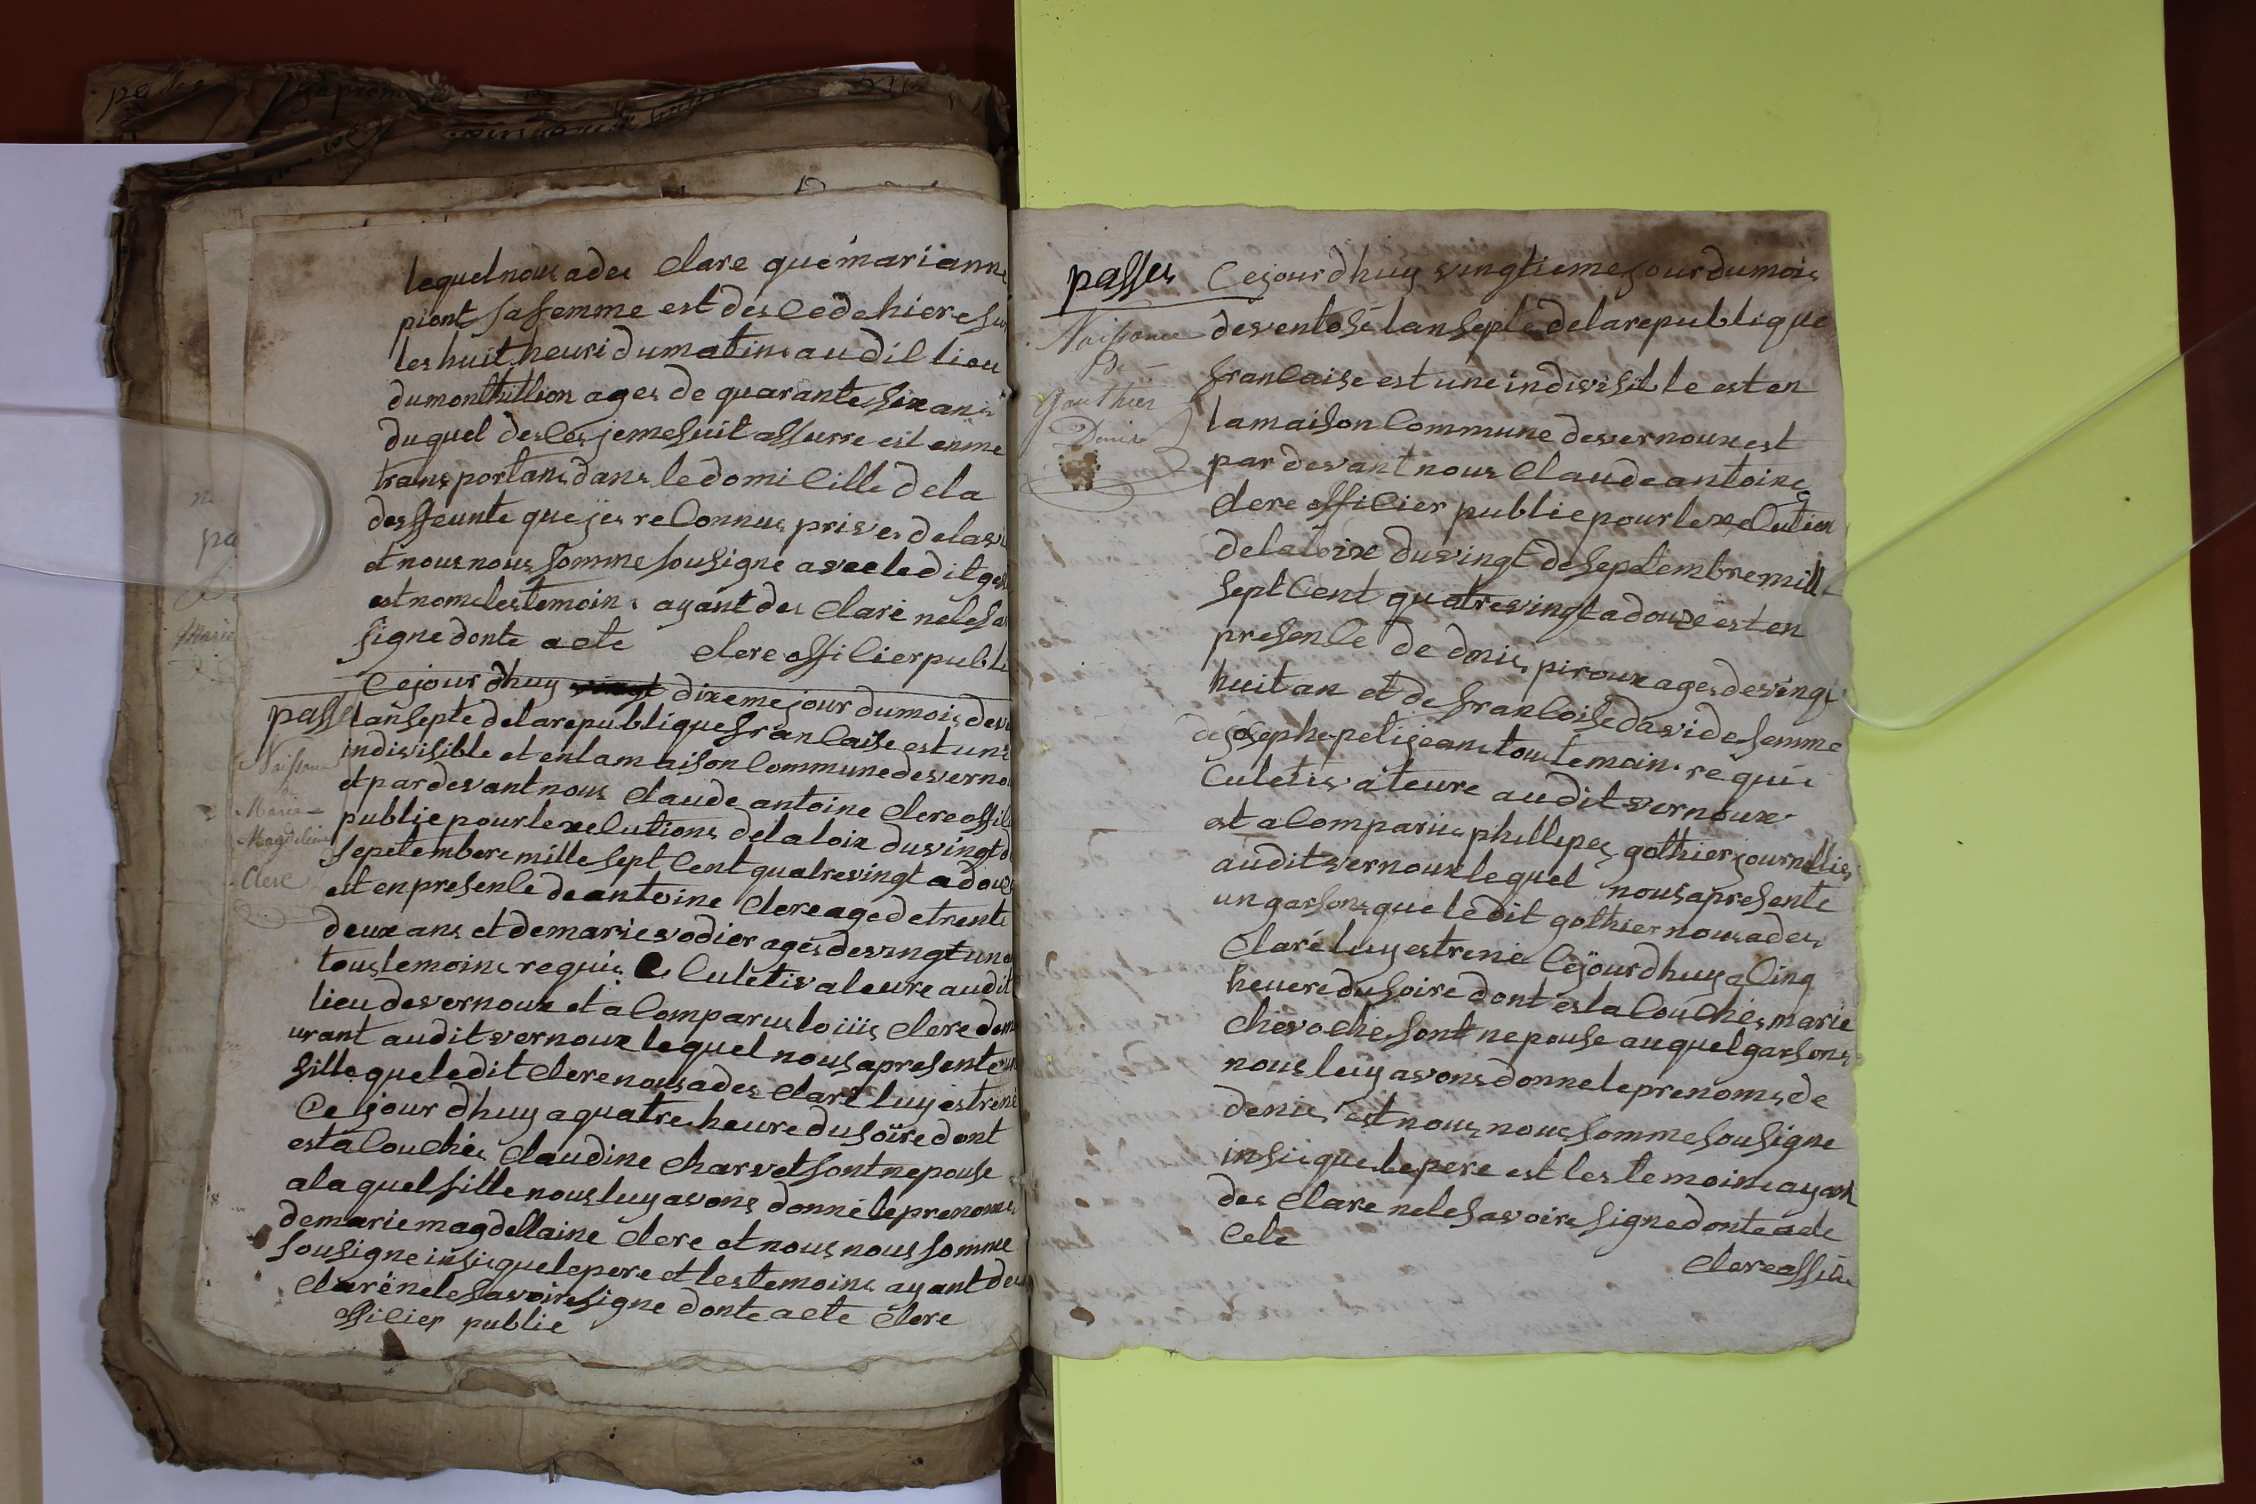 lequel nous a des Clare que mariann
piont sa femme est des Cede hiere sur
les huit heuri du matins au dit lieu
du monthillion ages de quarante six ans
du quel desCes je me suit assurre est en me
trans portans dans le domiCille de la
desffeunte que jes reConnus prives de la vi
et nous nous somme sousigne avec le dit
est nome les temoins ayant des Clare ne le sa
signe donte acte Clere offiCier publi
Ce jour dhuy dixeme jour du mois de ve
passe
lan septe de la republique franCaise est une
indivisible et en la maison Commune de verno
Naissance
et par devant nous Claude antoine Clere offi
publie pour lexeCutions de la loix du vingt d
Marie
Magdeleine
Clerc
sepetembere mille sept Cent quatre vingt a douze
est en presenCe de antoine Clere age de trente
deux ans et de marie vodier ages de vingt un a
tous temoins requis Culetivateure au dit
lieu de vernoux et a Comparus loiiis Clere dem
urant au dit vernoux lequel nous apresente un
fille que le dit Clere nous a des Clare luy estrene
Ce jour dhuy a quatre heure du soire dont
est aCouChés Claudine Charvet sont nepouse
a la quel fille nous luy avons donné le prenomes
de marie magdellaine Clere et nous nous somme
sousigne insis que le pere et les temoins ayant des
Claré ne le savoire signe donte acte Clere
offiCier publie
passes
Ce jour dhuy vingtieme jour du mois
Naissance
de
Gauthier
Denis
des ventose lan septe de la republique
franCaise est une indivisible est en
la maison Commune de vernoux est
par devant nous Claude antoine
Clere offiCier publie pour lexeCution
de la loix du vingt de sepetembre mill
sept Cent quatre vingt a douze est en
presenCe de denis piroux ages de vingt
huit an et de franCoise davide femme
de josephe petijean tous temoins requis
Culetivateure au dit vernoux
est a Comparus phillipes gothier journellier
au dit vernoux lequel nous apresente
un garsons que le dit gothier nous a des
Claré luy estrene Ce jour dhuy a Cinq
heuere du soire dont est aCouChés marie
Chevoche sont nepouse au quel garsons
nous luy avons donne le prenoms de
denis est nous nous somme sousigne
insi que le pere est les temoins ayant
des Clare ne le savoire signe donte acte
Cele
Clere offiCie